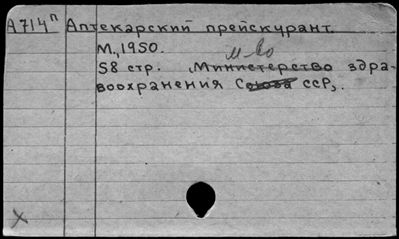 А714п Аптекарский прейскурант.
М., 1950.
м-во
58 стр. Министерство здра-
воохранения Союза ССР,.
X